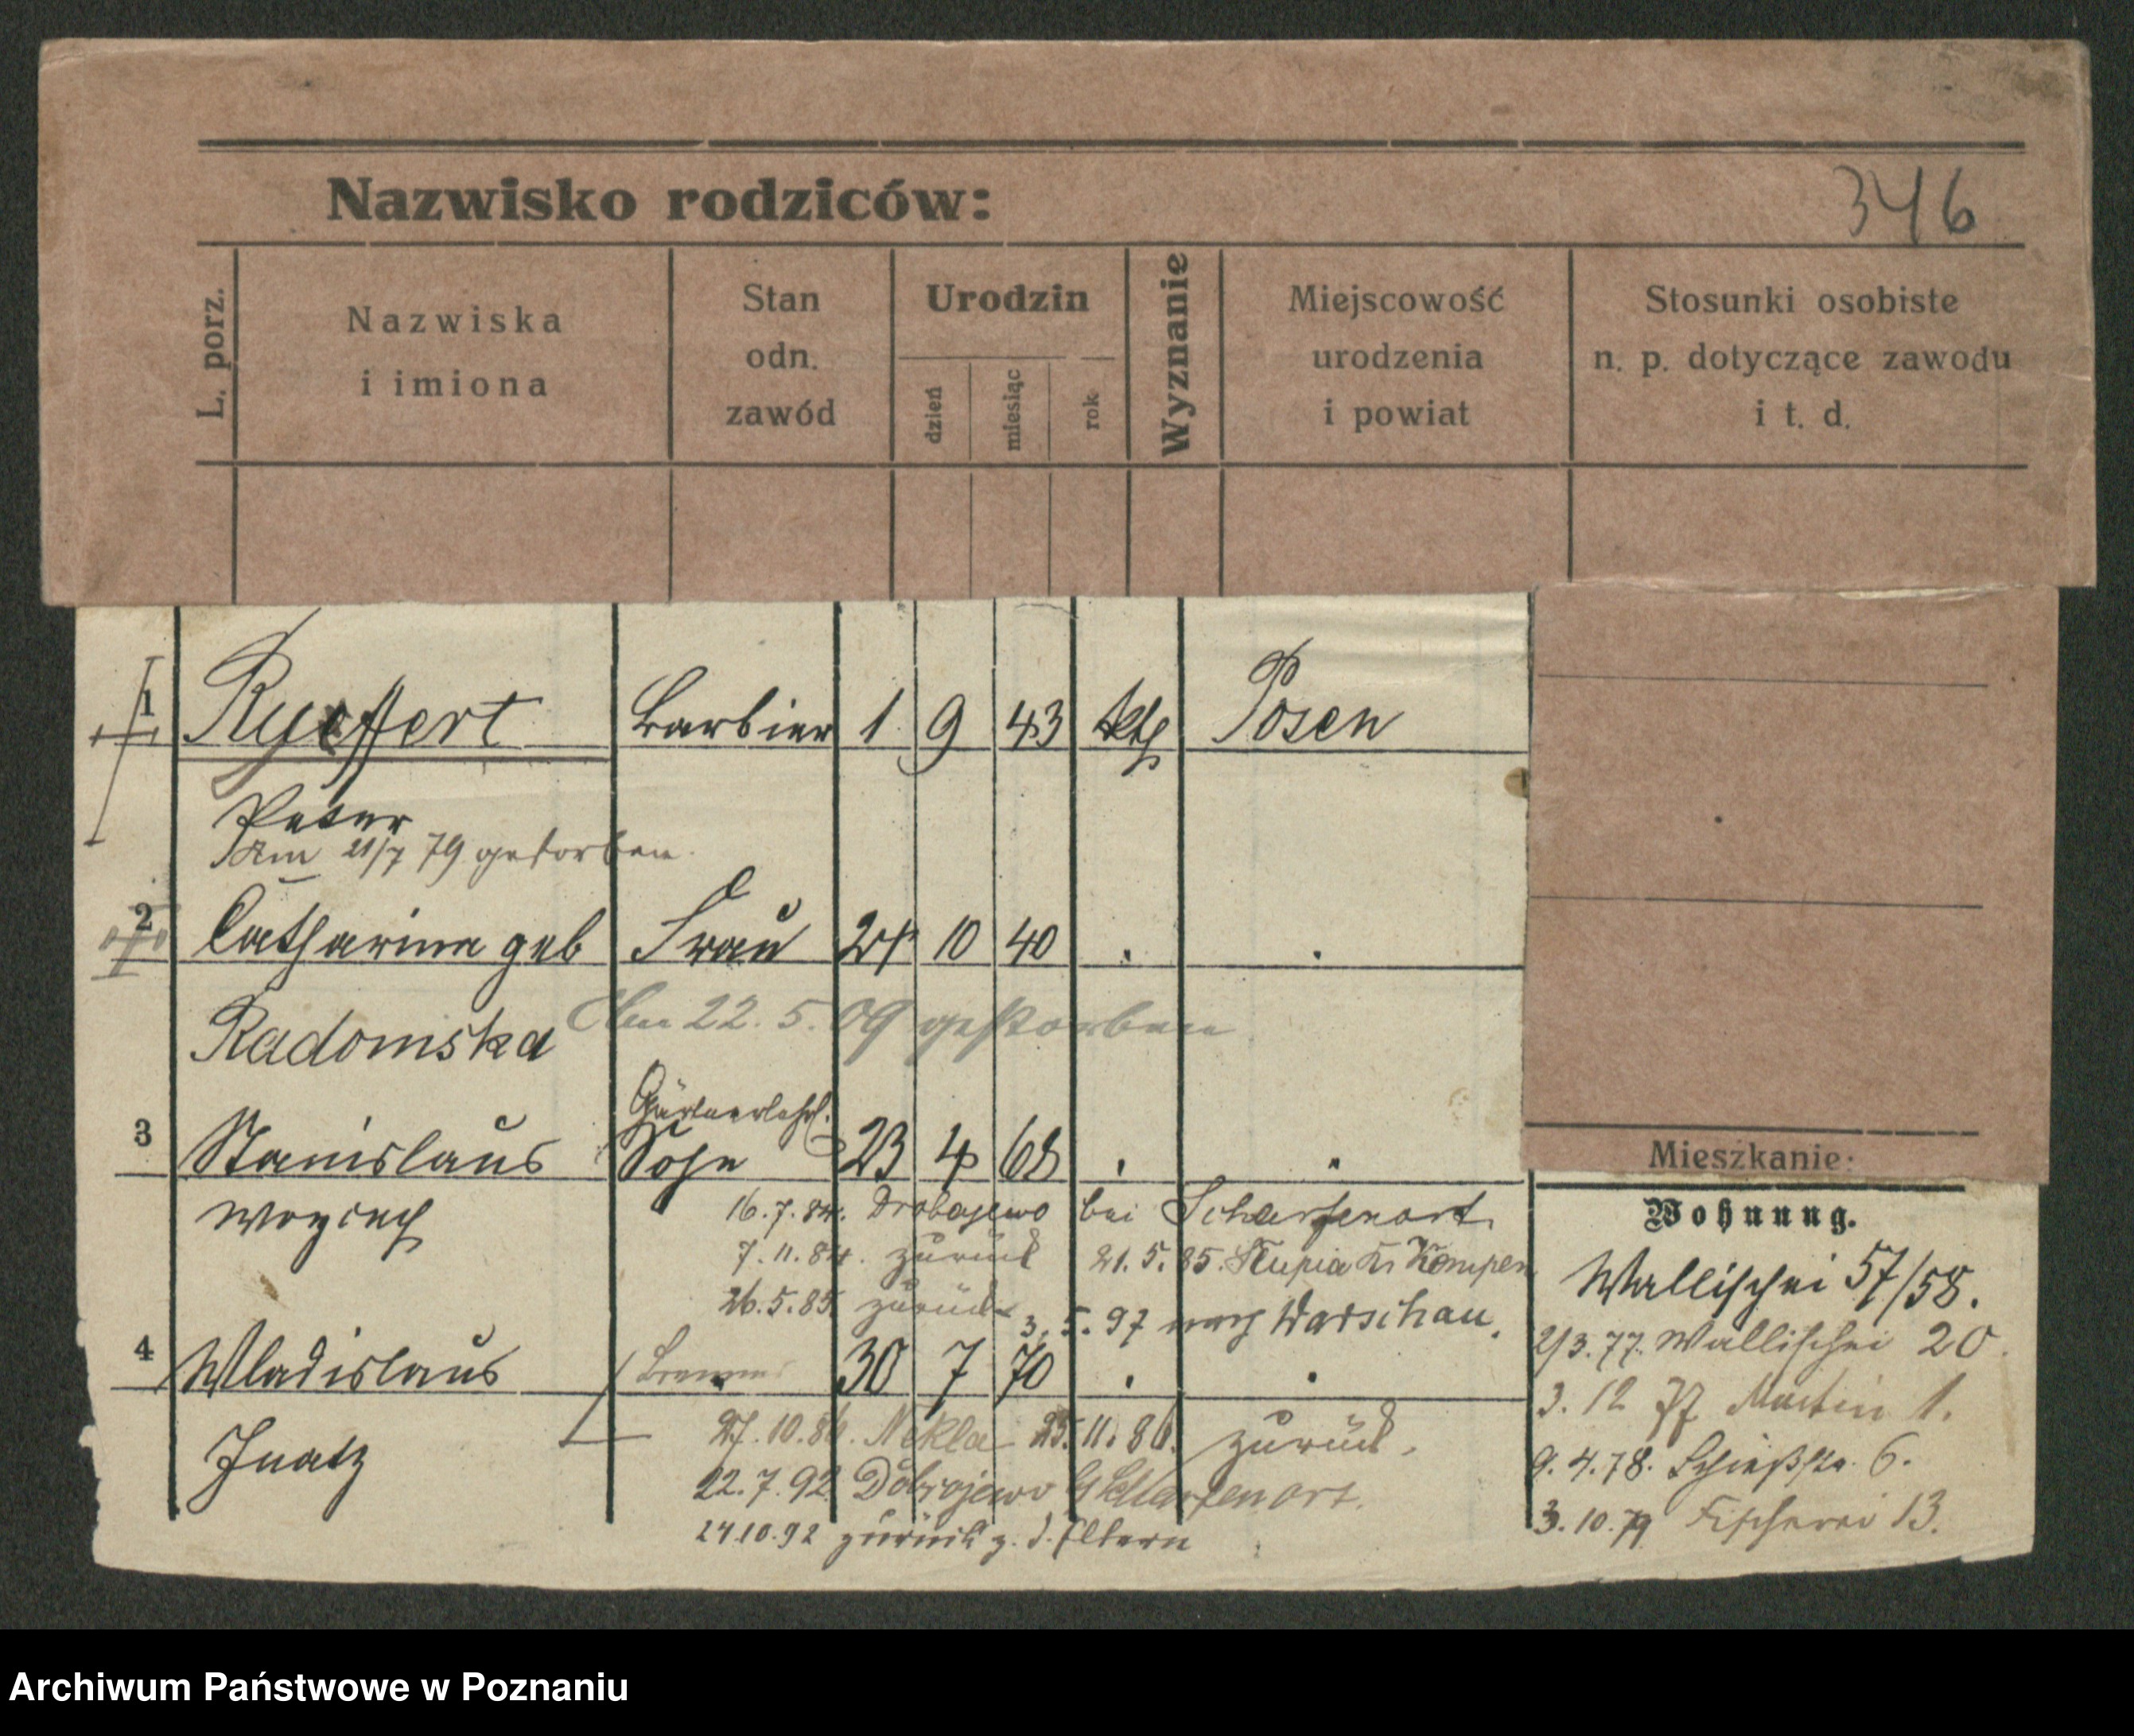 346
Nazwisko rodziców:
L. porz.
Nazwiska
i imiona
Stan
odn.
zawód
Urodzin
dzień
miesiąc
rok
Wyznanie
Miejscowość
urodzenia
i powiat
Stosunki osobiste
n. p. dotyczące zawodu
i t. d.
1 Ryeffert Barbier 1 9 43 kth Posen
Peter
Am 21/7 79 gestorben.
2 Catharina geb Frau 24 10 40 . .
Radomska Am 22. 5. 09 gestorben
Gärtnerlehrl.
3 Stanislaus Sohn 23 4 68 . .
Woyciech 16. 7. 84. Drobajewo bei Scharfenort.
7. 11. 84. zurück 21. 5. 85. Slupia Kr Kempen
26. 5. 85. zurück 3. 5. 97 nach Warschau.
4 Wladislaus 30 7 70 . .
Ignatz 27. 10. 86. Nekla 25. 11. 86. zurück.
22. 7. 92. Dobrojewo Scharfenort.
24 10. 92 zurück z. d. Eltern
Mieszkanie:
Wohnung.
Wallischei 57/58.
2/3. 77. Wallischei 20.
3. 12 77 Martin 1.
9. 4. 78. Schießstr. 6.
3. 10. 79 Fischerei 13.
Archiwum Państwowe w Poznaniu